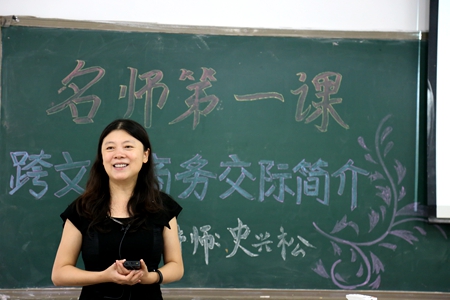 名师第一课
跨文 商务交际简介
师:史兴松